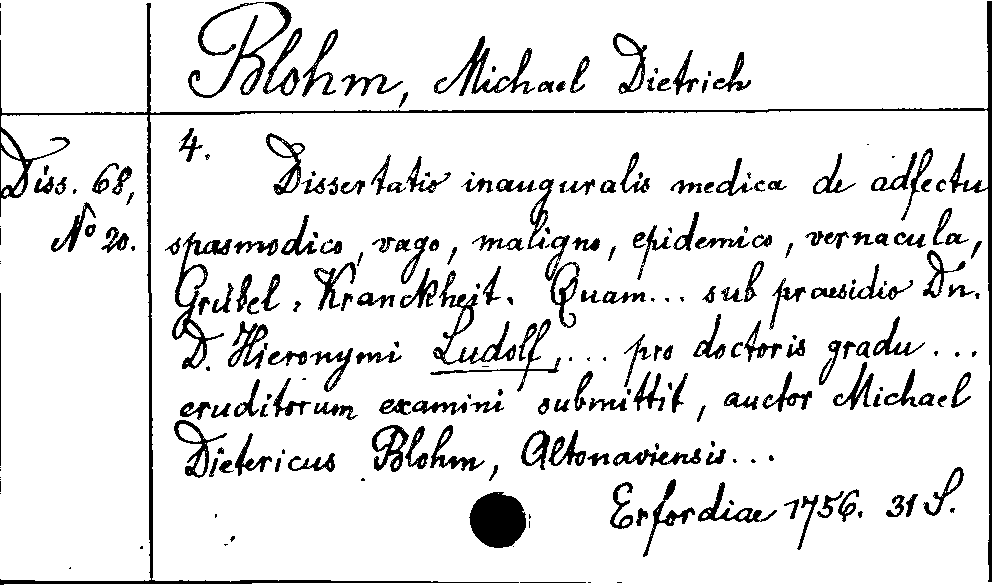 Blohm, Michael Dietrich
Diss. 68,
No 20.
4.
Dissertatio inauguralis medica de adfectu
spasmodico, vago, maligno, epidemico, vernacula,
Gribel-Kranckheit. Quam... sub praesidio Dn.
D. Hieronymi Ludolf,... pro doctoris gradu...
eruditorum examini submittit, auctor Michael
Dietericus Blohm, Altonaviensis...
Erfordiae 1756. 31 S.